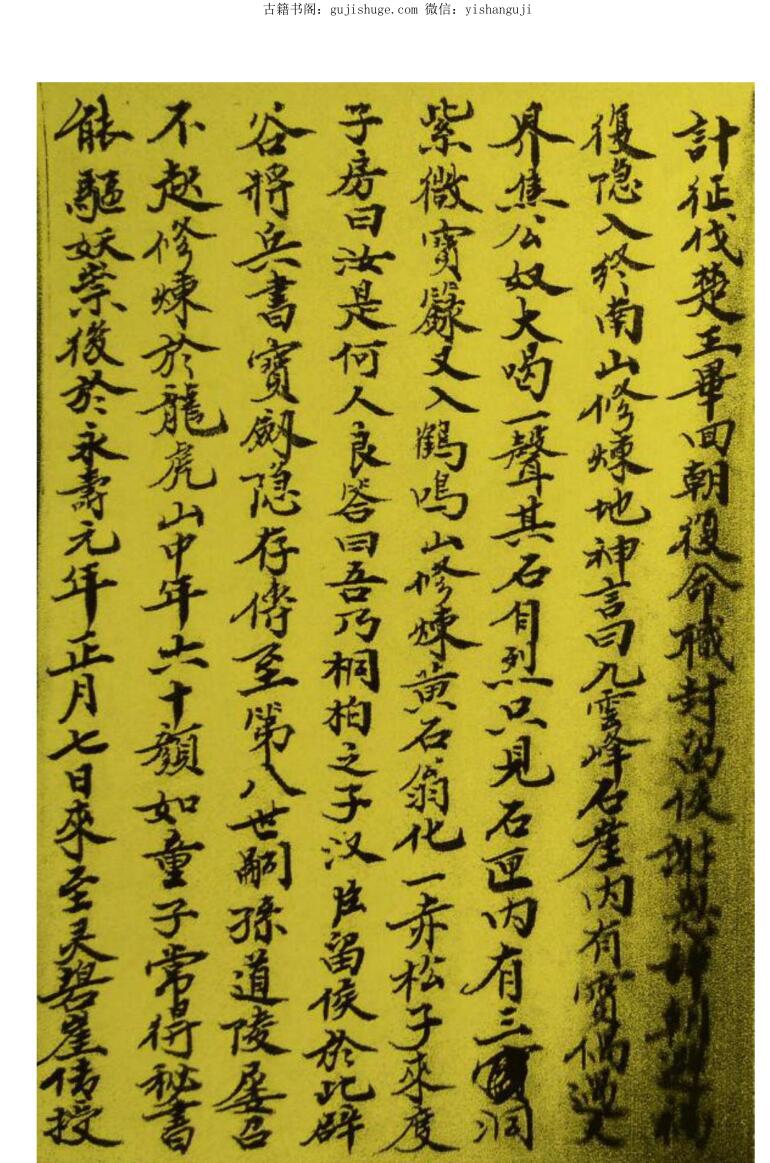 古籍书阁：gujishuge.com 微信：yishanguji
計征伐楚王畢回朝復命職封留侯謝恩辞朝避禍
復隐入终南山修煉地神言曰九雲峰石崖内有寳偶遇火
界焦公奴大喝一聲其石自烈只見石匣内有三洞
紫微寳籙又入鶴鳴山修煉黄石翁化一赤松子來度
子房曰汝是何人良答曰吾乃桐柏之子汉臣留侯於此辟
谷將兵書寳劔隐存傳至第八世嗣孫道陵屡召
不赴修煉於龍虎山中年六十顔如童子常得秘書
能驅妖祟後於永壽元年正月七日來至灵碧崖传授